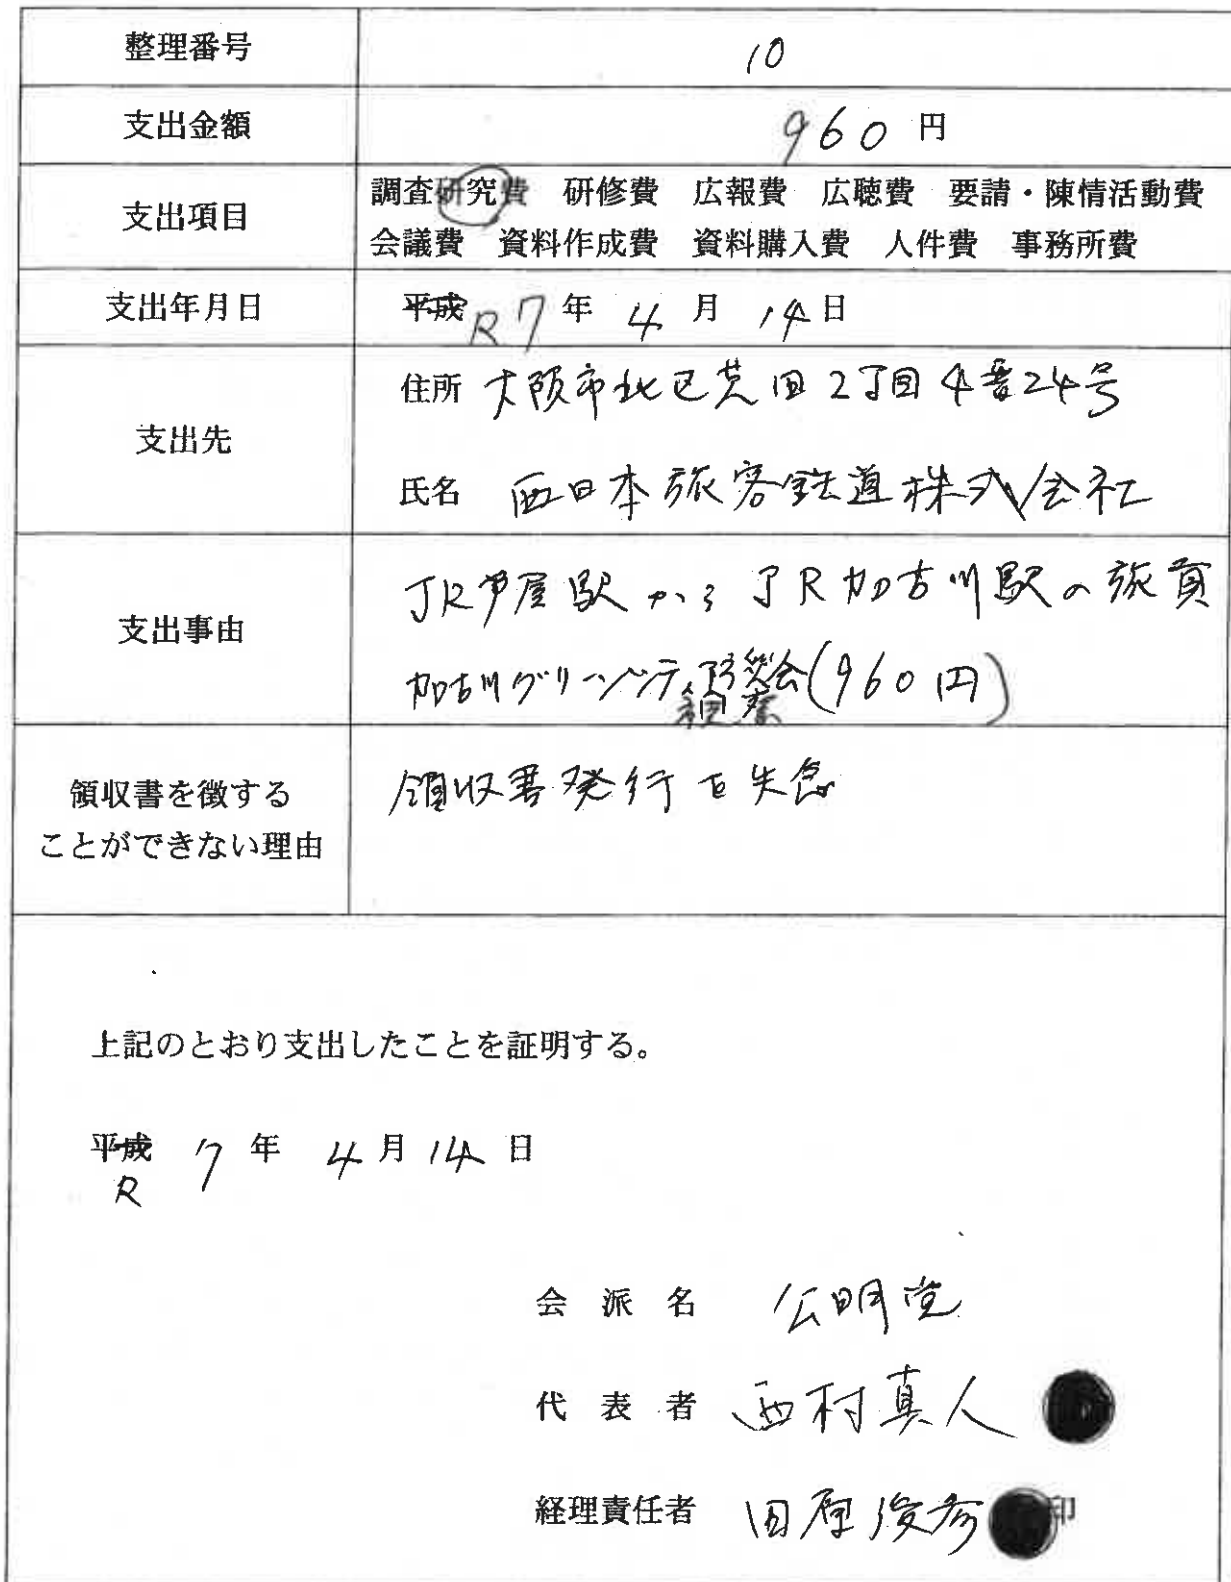 整理番号 10
支出金額 960 円
支出項目 調査研究費 研修費 広報費 広聴費 要請・陳情活動費
会議費 資料作成費 資料購入費 人件費 事務所費
支出年月日 平成 R7 年 4 月 14 日
支出先 住所 大阪市北区芝田2丁目4番24号
氏名 西日本旅客鉄道株式会社
支出事由 JR芦屋駅から JR加古川駅の旅費
加古川グリーンシティ防災会(960円)
領収書を徴する
ことができない理由
領収書発行を失念
上記のとおり支出したことを証明する。
平成 R 7 年 4 月 14 日
会派名 公明党
代表者 西村真人
経理責任者 田原俊彦 印